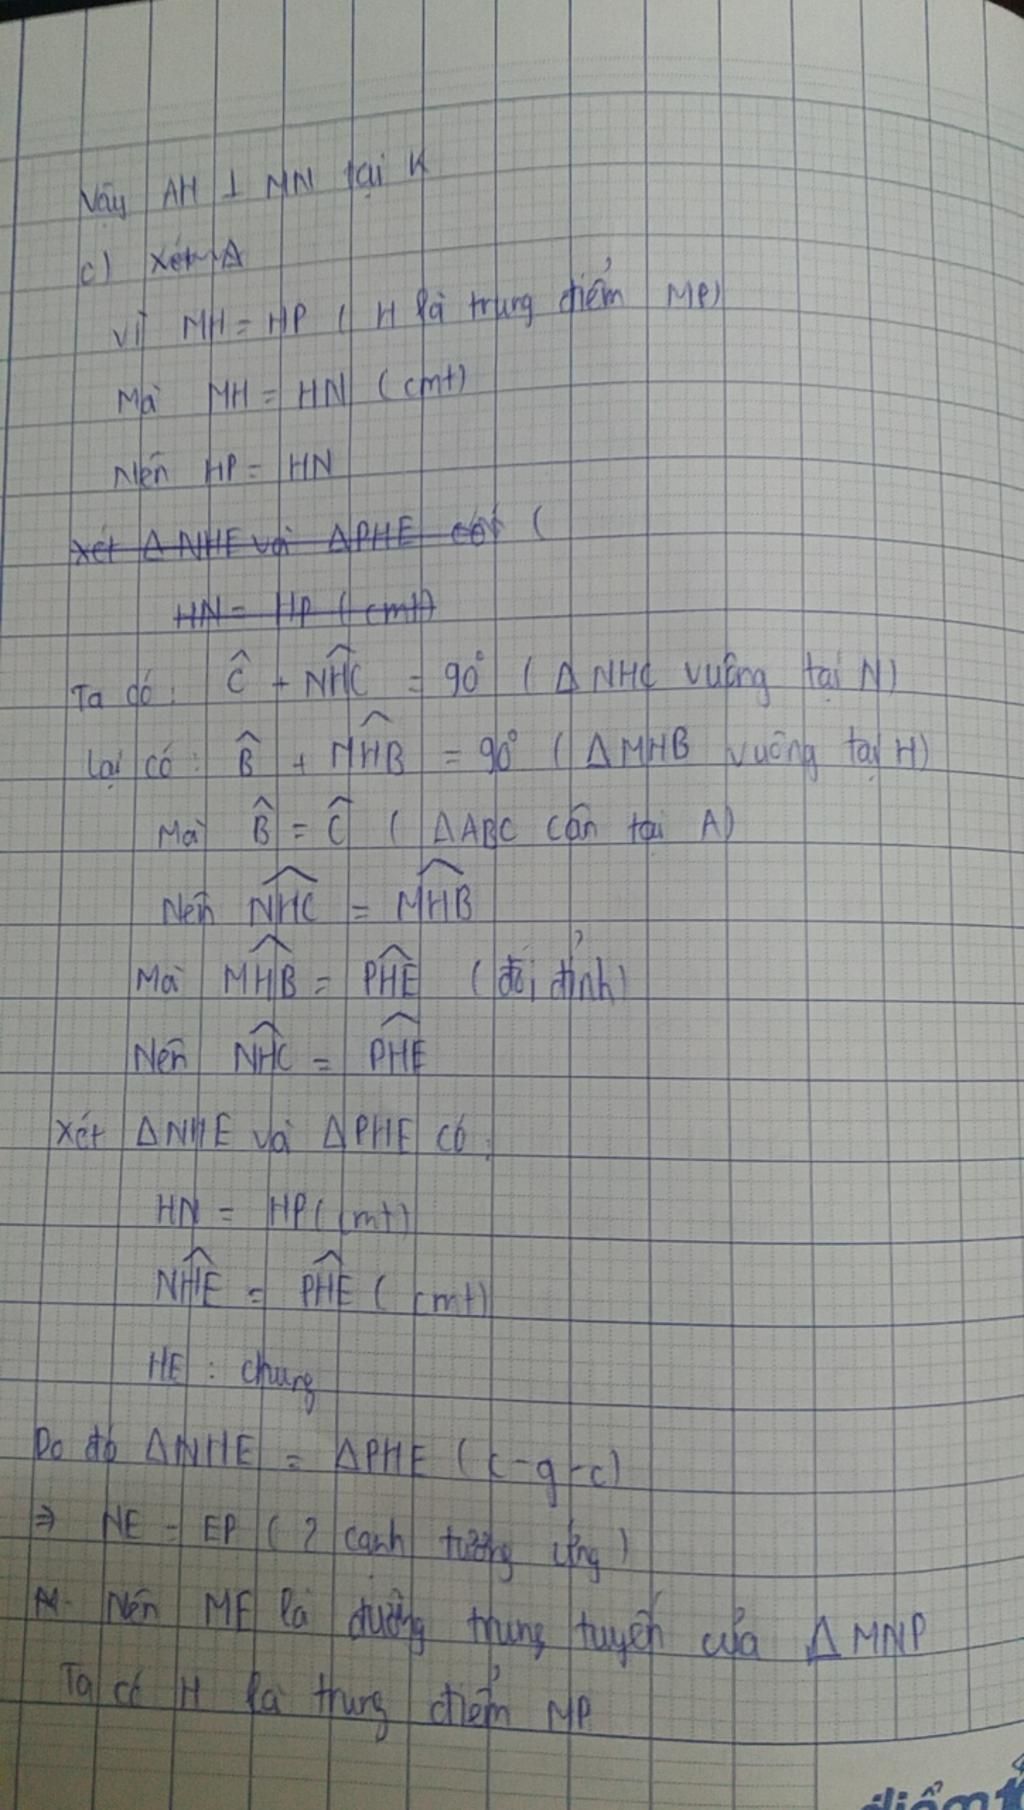 Vậy AH ⊥ MN tại K
c) Xét A
Vì MH = HP ( H là trung điểm MP)
Mà MH = HN (cmt)
Nên HP = HN
Xét Δ NHE và ΔPHE có (
HN = HP (cmt)
Ta có: Ĉ + N̂HC = 90° ( Δ NHC vuông tại N)
Lại có: B̂ + M̂HB = 90° ( ΔMHB vuông tại H)
Mà B̂ = Ĉ ( ΔABC cân tại A)
Nên N̂HC = M̂HB
Mà M̂HB = P̂HE (đối đỉnh)
Nên N̂HC = P̂HE
Xét ΔNHE và ΔPHE có:
HN = HP (cmt)
N̂HE = P̂HE ( cmt)
HE : chung
Do đó ΔNHE = ΔPHE (c-g-c)
⇒ NE = EP ( 2 cạnh tương ứng )
Nên ME là đường trung tuyến của Δ MNP
Ta có H là trung điểm MP